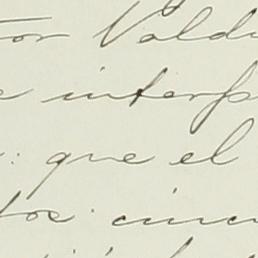 tor Valdi
e interp
: que el
tos cinc